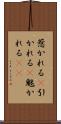 惹かれる 引
かれる 魅か
れる